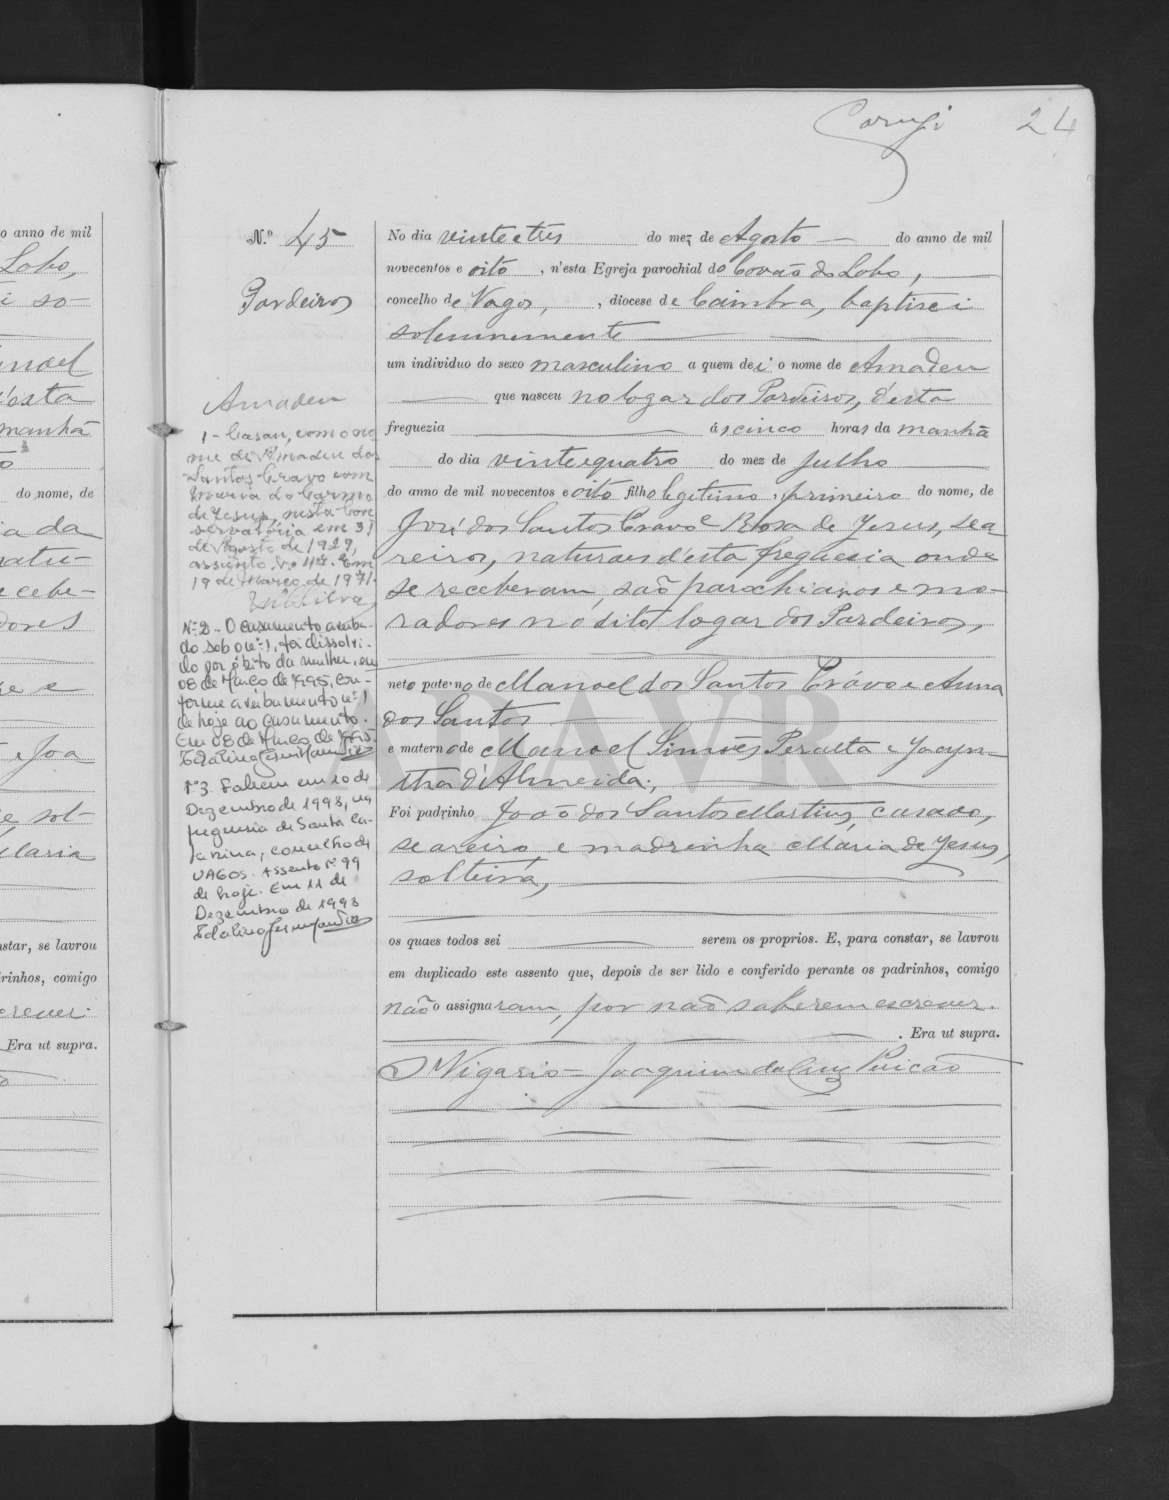 24
o anno de mil
Lobo,
i so-
noel
d'esta
manhã
do nome, de
ia da
natu-
recebe-
dores
e Joa
e sol-
Maria
nstar, se lavrou
drinhos, comigo
crever.
Era ut supra.
N.º 45
Pardeiros
Amadeu
1 - Casou, com o no
me de Amadeu dos
Santos Cravo com
Maria do Carmo
de Jesus, nesta Con
servatória em 31
de Agosto de 1929,
assento n.º 47. Em
19 de Março de 1971.
Nº 2 - O casamento averba-
do sob o nº 1, foi dissolvi-
do por óbito da mulher, em
08 de Março de 1995, con-
forme averbamento nº 1
de hoje ao casamento.
Em 08 de Março de 1995.
Nº 3. Faleceu em 10 de
Dezembro de 1998, na
freguesia de Santa Ca-
tarina, concelho de
VAGOS. Assento nº 99
de hoje. Em 11 de
Dezembro de 1998
No dia vinte e tres do mez de Agosto do anno de mil
novecentos e oito, n'esta Egreja parochial do Covão do Lobo,
concelho de Vagos, , diocese de Coimbra, baptisei
solemnemente
um individuo do sexo masculino a quem dei o nome de Amadeu
que nasceu no logar dos Pardeiros, d'esta
freguezia ás cinco horas da manhã
do dia vinte e quatro do mez de Julho
do anno de mil novecentos e oito filho legitimo, primeiro do nome, de
José dos Santos Cravo e Rosa de Jesus, sea
reiros, naturaes d'esta freguesia onde
se receberam, são parochianos e mo-
radores no dito logar dos Pardeiros,
neto paterno de Manoel dos Santos Crávo e Anna
dos Santos
e materno de Manoel Simões Peralta e Jacyn-
tha d'Almeida;
Foi padrinho João dos Santos Martins, casado,
seareiro e madrinha Maria de Jesus,
solteira,
os quaes todos sei serem os proprios. E, para constar, se lavrou
em duplicado este assento que, depois de ser lido e conferido perante os padrinhos, comigo
não o assignaram, por não saberem escrever.
. Era ut supra.
O Vigario - Joaquim da Cruz
ADAVR